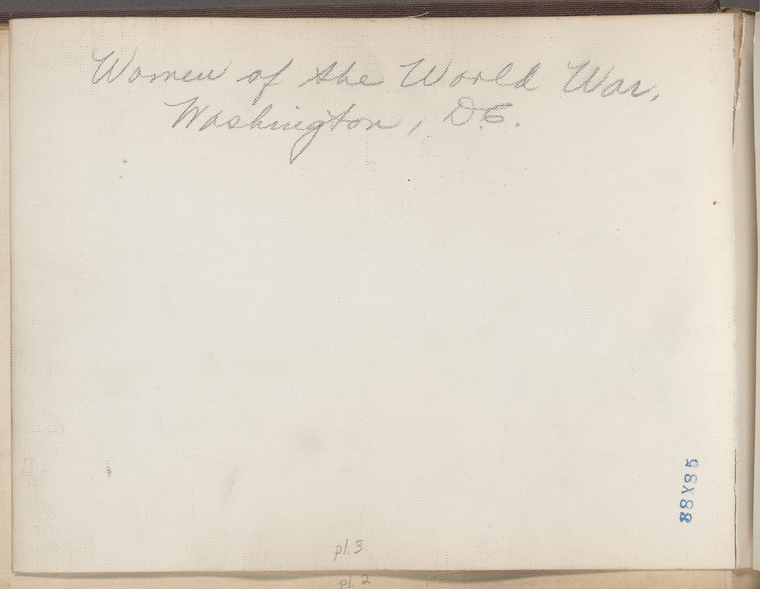 Women of the World War,
Washington, D.C.
88X85
pl. 3
pl. 2